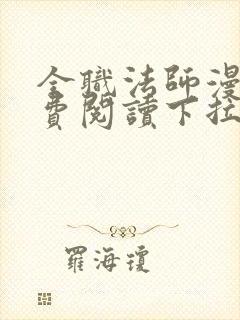 全職法師漫
費閱讀下拉
羅海瓊